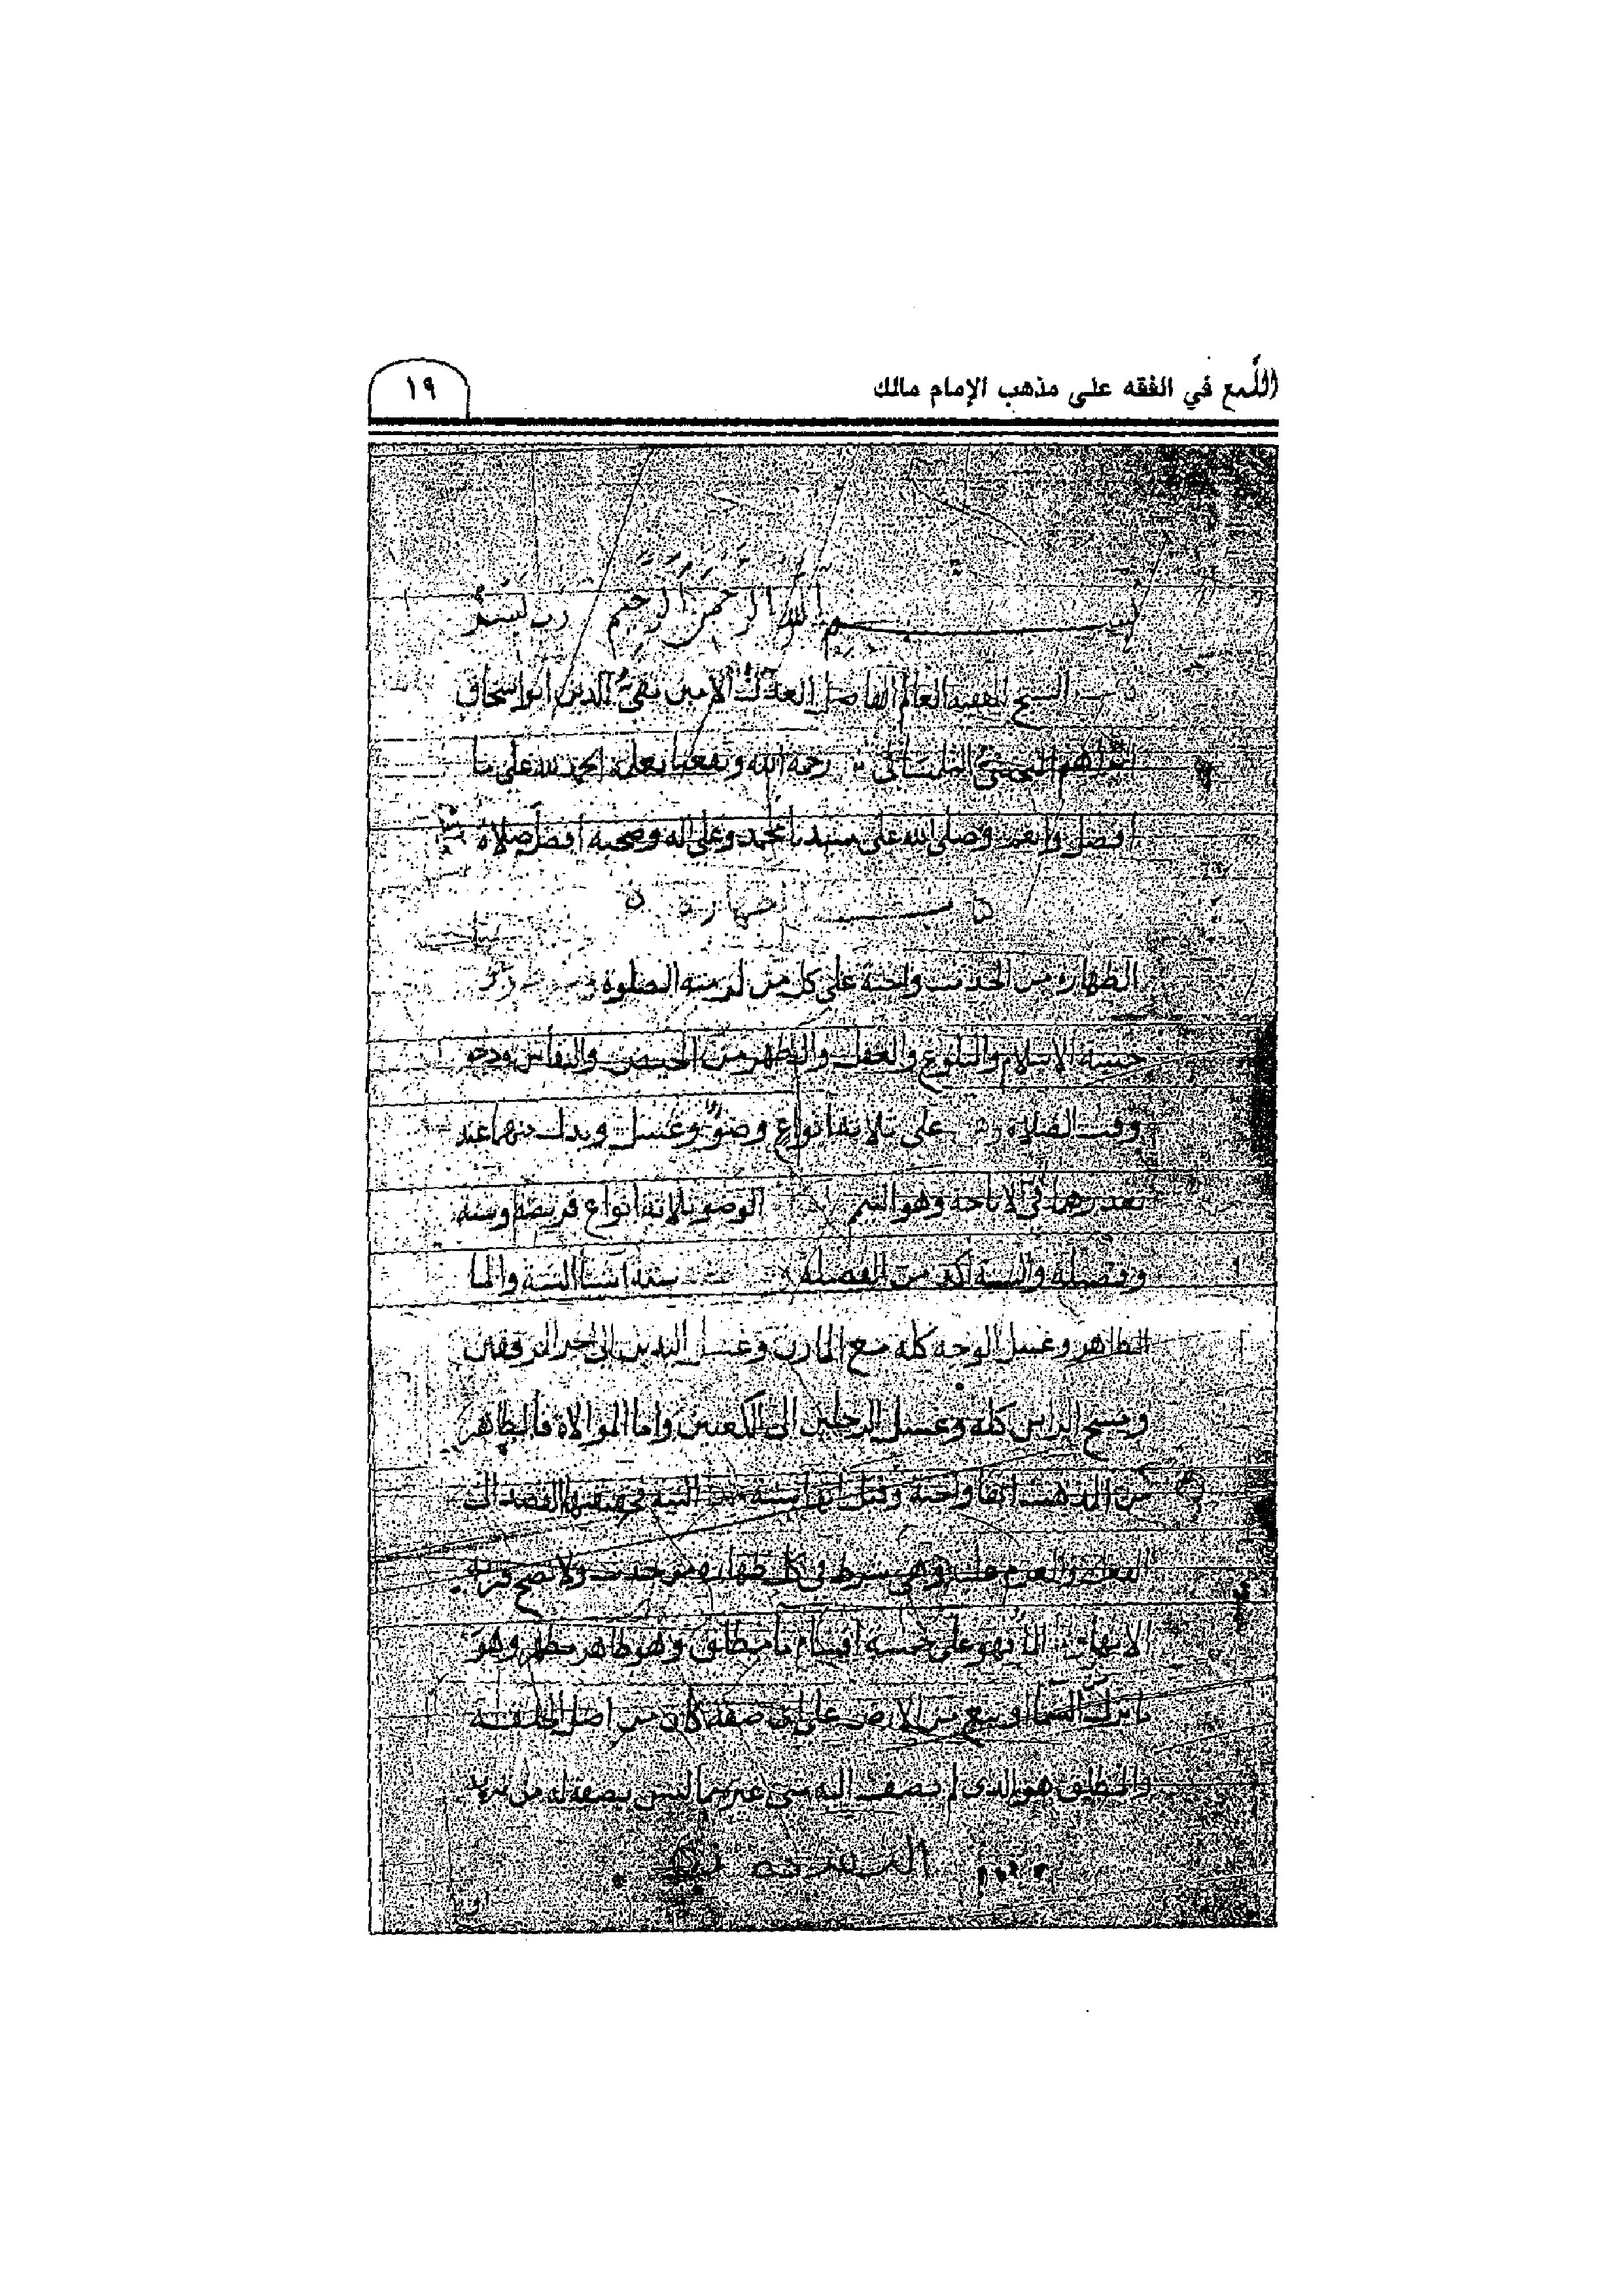 اللُّمع في الفقه على مذهب الإمام مالك
١٩
بسم الله الرحمن الرحيم رب يسر
الشيخ الفقيه العالم الفاضل العدل الأمين تقي الدين ابو اسحاق
ابراهيم التلمساني رحمه الله ونفعنا بعلمه الحمد لله على ما
افضل وانعم وصلى الله على سيدنا محمد وعلى اله وصحبه افضل صلاة
الطهارة من الحدث واجبة على كل من لزمته الصلوة
خمسة الاسلام والبلوغ والعقل والطهر من الحيض والنفاس ودخو
وقت الصلاة على ثلاثة انواع وضوء وغسل وبدل منهما عند
تعذرهما في الاباحة وهو التيمم الوضو ثلاثة انواع فريضة وسنة
وفضيلة والسنة اكد من الفضيلة ستة اشيا النية والما
الطاهر وغسل الوجه كله مع المارن وغسل اليدين الى اخر المرفقين
ومسح الراس كله وغسل الرجلين الى الكعبين واما الموالاة فالظاهر
من المذهب انها واجبة وقيل انها سنة النية حقيقتها القصد الى
الفعل والعزم عليه وهي شرط في كل طهارة من حدث ولا تصح قربة
الا بها وهو على خمسة اقسام ما مطلق وهو طاهر مطهر وهو
ما نزل من السما او نبع من الارض على اي صفة كان من اصل الخلقة
والمطلق هو الذي لم ينضف اليه شي غيره مما ليس بصفة له من